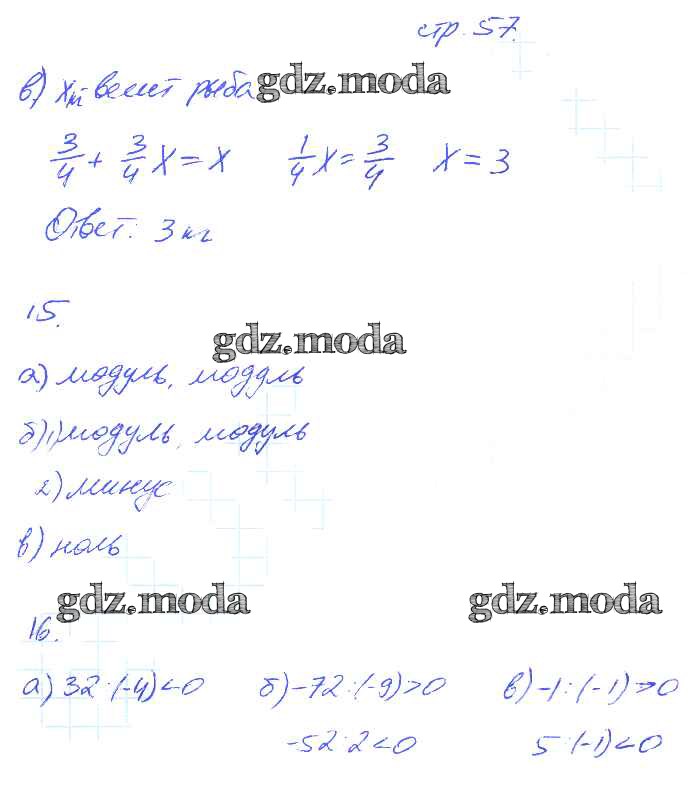 стр. 57.
в) х кг - весит рыба
gdz.moda
3/4 + 3/4 х = х   1/4 х = 3/4   х = 3
Ответ: 3 кг
15.
gdz.moda
а) модуль, модуль
б) 1) модуль, модуль
2) минус
в) ноль
gdz.moda gdz.moda
16.
а) 32 : (-4) < 0   б) -72 : (-9) > 0   в) -1 : (-1) > 0
-52 : 2 < 0   5 : (-1) < 0